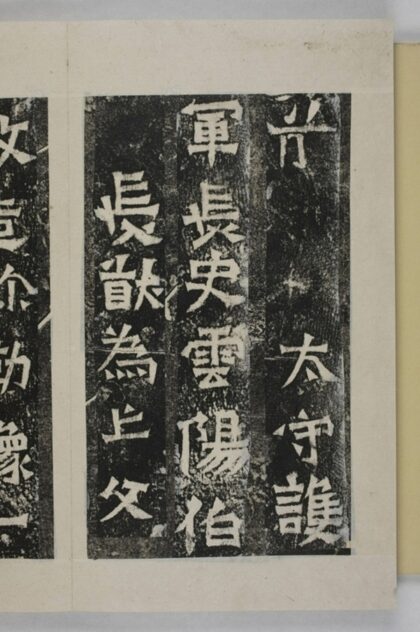 太守護
軍長史雲陽伯
長猷為亡父
造弥勒像一